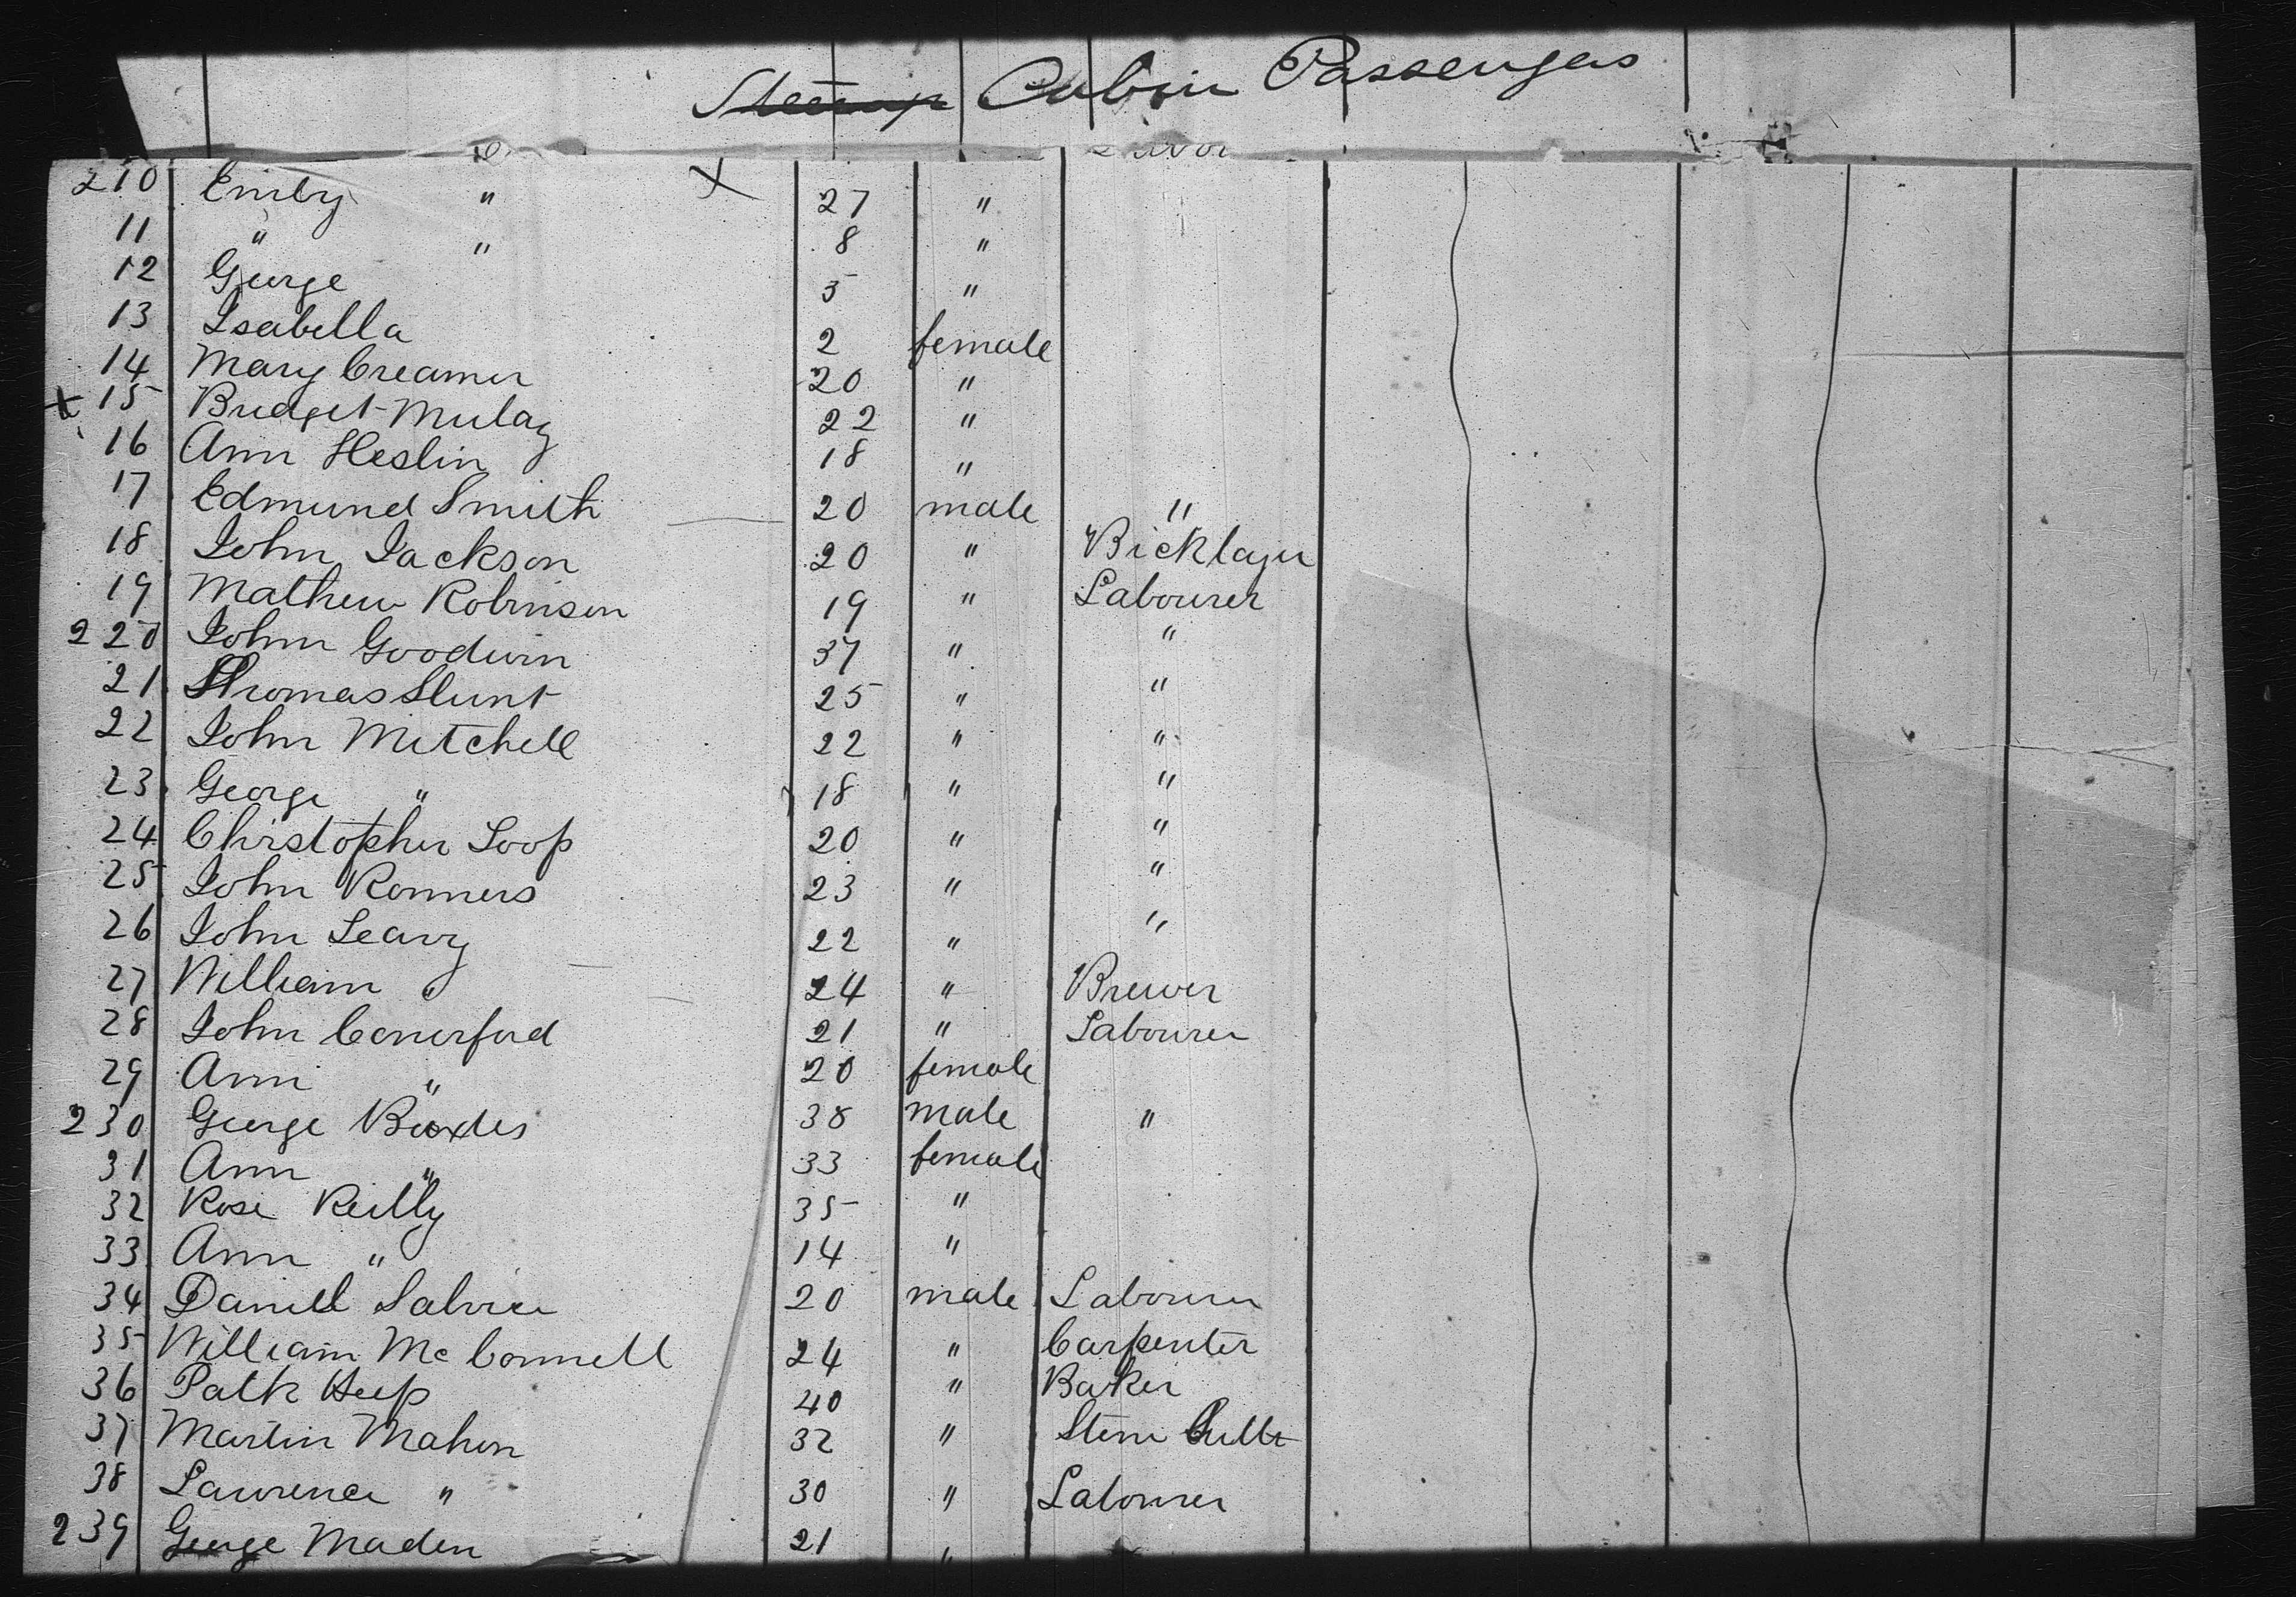 Steerage Cabin Passengers
210 Emily " 27 "
11 " " 8 "
12 George 5 "
13 Isabella 2 female
14 Mary Creamer 20 "
x 15 Bridget Mulay 22 "
16 Ann Heslin 18 "
17 Edmund Smith 20 male "
18 John Jackson 20 " Bicklayer
19 Mathew Robinson 19 " Labourer
220 John Goodwin 37 " "
21 Thomas Hunt 25 " "
22 John Mitchell 22 " "
23 George " 18 " "
24 Christopher Loop 20 " "
25 John Ronners 23 " "
26 John Leavy 22 " "
27 William " 24 " Brewer
28 John Comerford 21 " Labourer
29 Ann " 20 female
230 George 38 male "
31 Ann " 33 female
32 Rose Reilly 35 "
33 Ann " 14 "
34 Daniel 20 male Labourer
35 William McConnell 24 " Carpenter
36 Patk Heep 40 " Baker
37 Martin Mahon 32 " Stone Cutter
38 Lawrence " 30 " Labourer
239 George Maden 21 "